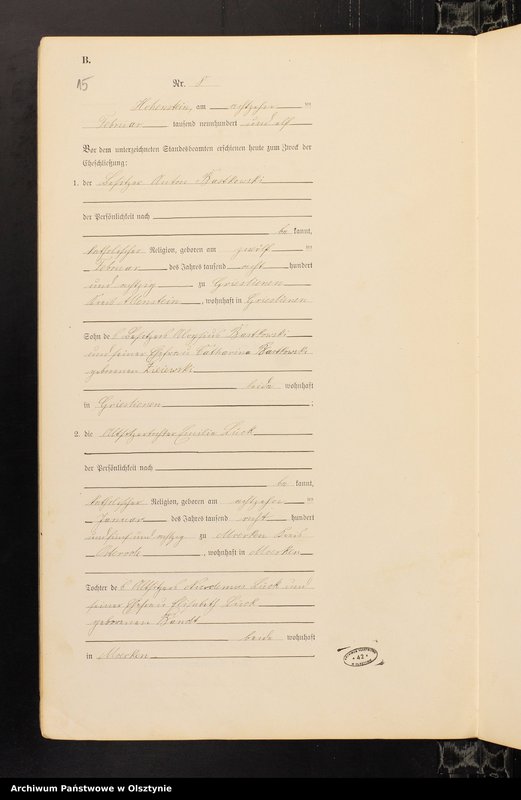 B.
15
Nr. 5
Hohenstein, am achtzehn ten
Februar tausend neunhundert und elf
Vor dem unterzeichneten Standesbeamten erschienen heute zum Zweck der
Eheschließung:
1. der Besitzer Anton Bartkowski
der Persönlichkeit nach
be kannt,
katholischer Religion, geboren am zwölf ten
Februar des Jahres tausend acht hundert
und achtzig zu Grieslienen
Kreis Allenstein, wohnhaft in Grieslienen
Sohn des Besitzers Aloysius Bartkowski
und seiner Ehefrau Catharina Bartkowski
geborenen
beide wohnhaft
in Grieslienen ;
2. die Altsitzertochter Emilie Luck
der Persönlichkeit nach
be kannt,
katholischer Religion, geboren am achtzehn ten
Januar des Jahres tausend acht hundert
und achtzig zu Moerken Kreis
Osterode, wohnhaft in Moerken
Tochter des Altsitzers Luck und
seiner Ehefrau Elisabeth Luck
geborenen
beide wohnhaft
in Moerken
42
Archiwum Państwowe w Olsztynie